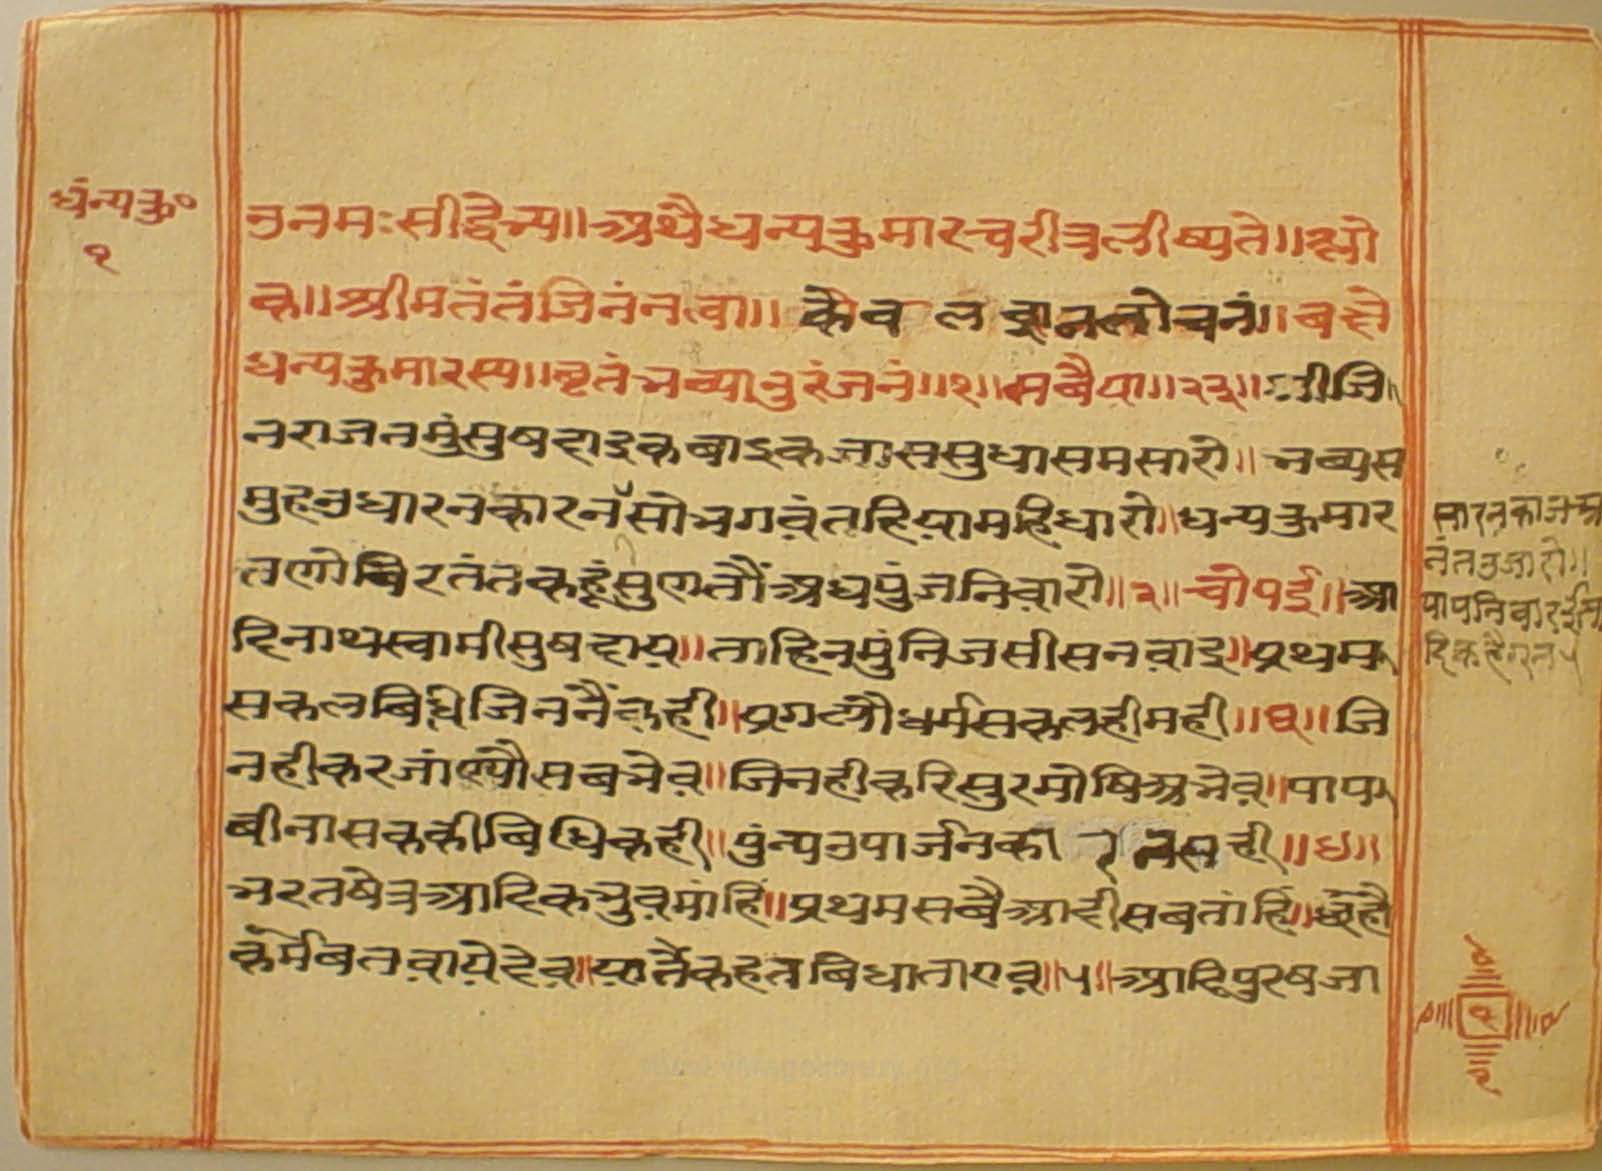 धंन्यकु०
१
उनमःसीद्धेभ्य॥अथैधन्यकुमारचरीत्रलीष्यते॥श्लो
क॥श्रीमतंतंजिनंनत्वा॥केवलज्ञानलोचनं॥बक्ष्ये
धन्यकुमारस्य॥बृतंभव्यानुरंजनं॥१॥सबैया॥२३॥श्रीजि
नराजनमुंसुषदाइकबाइकजाससुधासमसारो॥भव्यस
मुहउधारनकारनसोभगवंतहियामहिधारो॥धन्यकुमार
तणोबिरतंतकहूंसुणतौंअघपुंजनिवारो॥२॥चोपई॥आ
दिनाथस्वामीसुषदाय॥ताहिनमुंनिजसीसनवाइ॥प्रथम
सकलबिधिजिननैंकही॥प्रगट्यौधर्मसकलहीमही॥३॥जि
नहीकरजांण्यौसबभेव॥जिनहीकरिसुरमोषिअभेव॥पाप
बीनासककीबिधिकही॥पुंन्यउपार्जनकारनसही॥४॥
भरतषेत्रआदिकभुवमांहिं॥प्रथमसबैआदीसबतांहिं॥
कर्मबतवायेदेव॥यातैंकहतबिधाताएव॥५॥आदिपुरषजा
पापनिवार
१